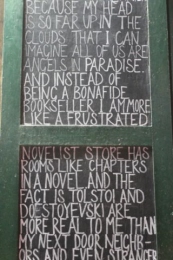 BECAUSE MY HEAD
IS SO FAR UP IN THE
CLOUDS. THAT I CAN
IMAGINE ALL OF US ARE
ANGELS IN PARADISE.
AND INSTEAD OF
BEING A BONAFIDE
BOOKSELLER I AM MORE
LIKE A FRUSTRATED
NOVELIST STORE HAS
ROOMS LIKE CHAPTERS
IN A NOVEL. AND THE
FACT IS TOLSTOI AND
DOESTOYEVSKI ARE
MORE REAL TO ME THAN
MY NEXT DOOR NEIGHB-
ORS AND EVEN STRANGER